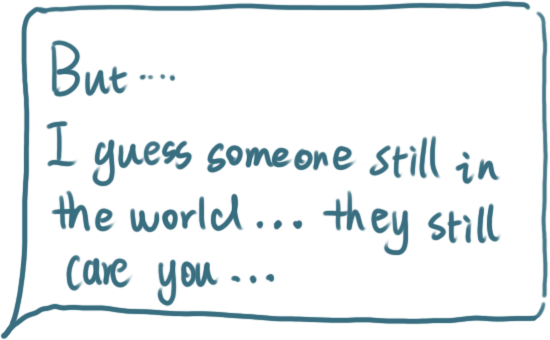 But ....
I guess someone still in
the world... they still
care you...